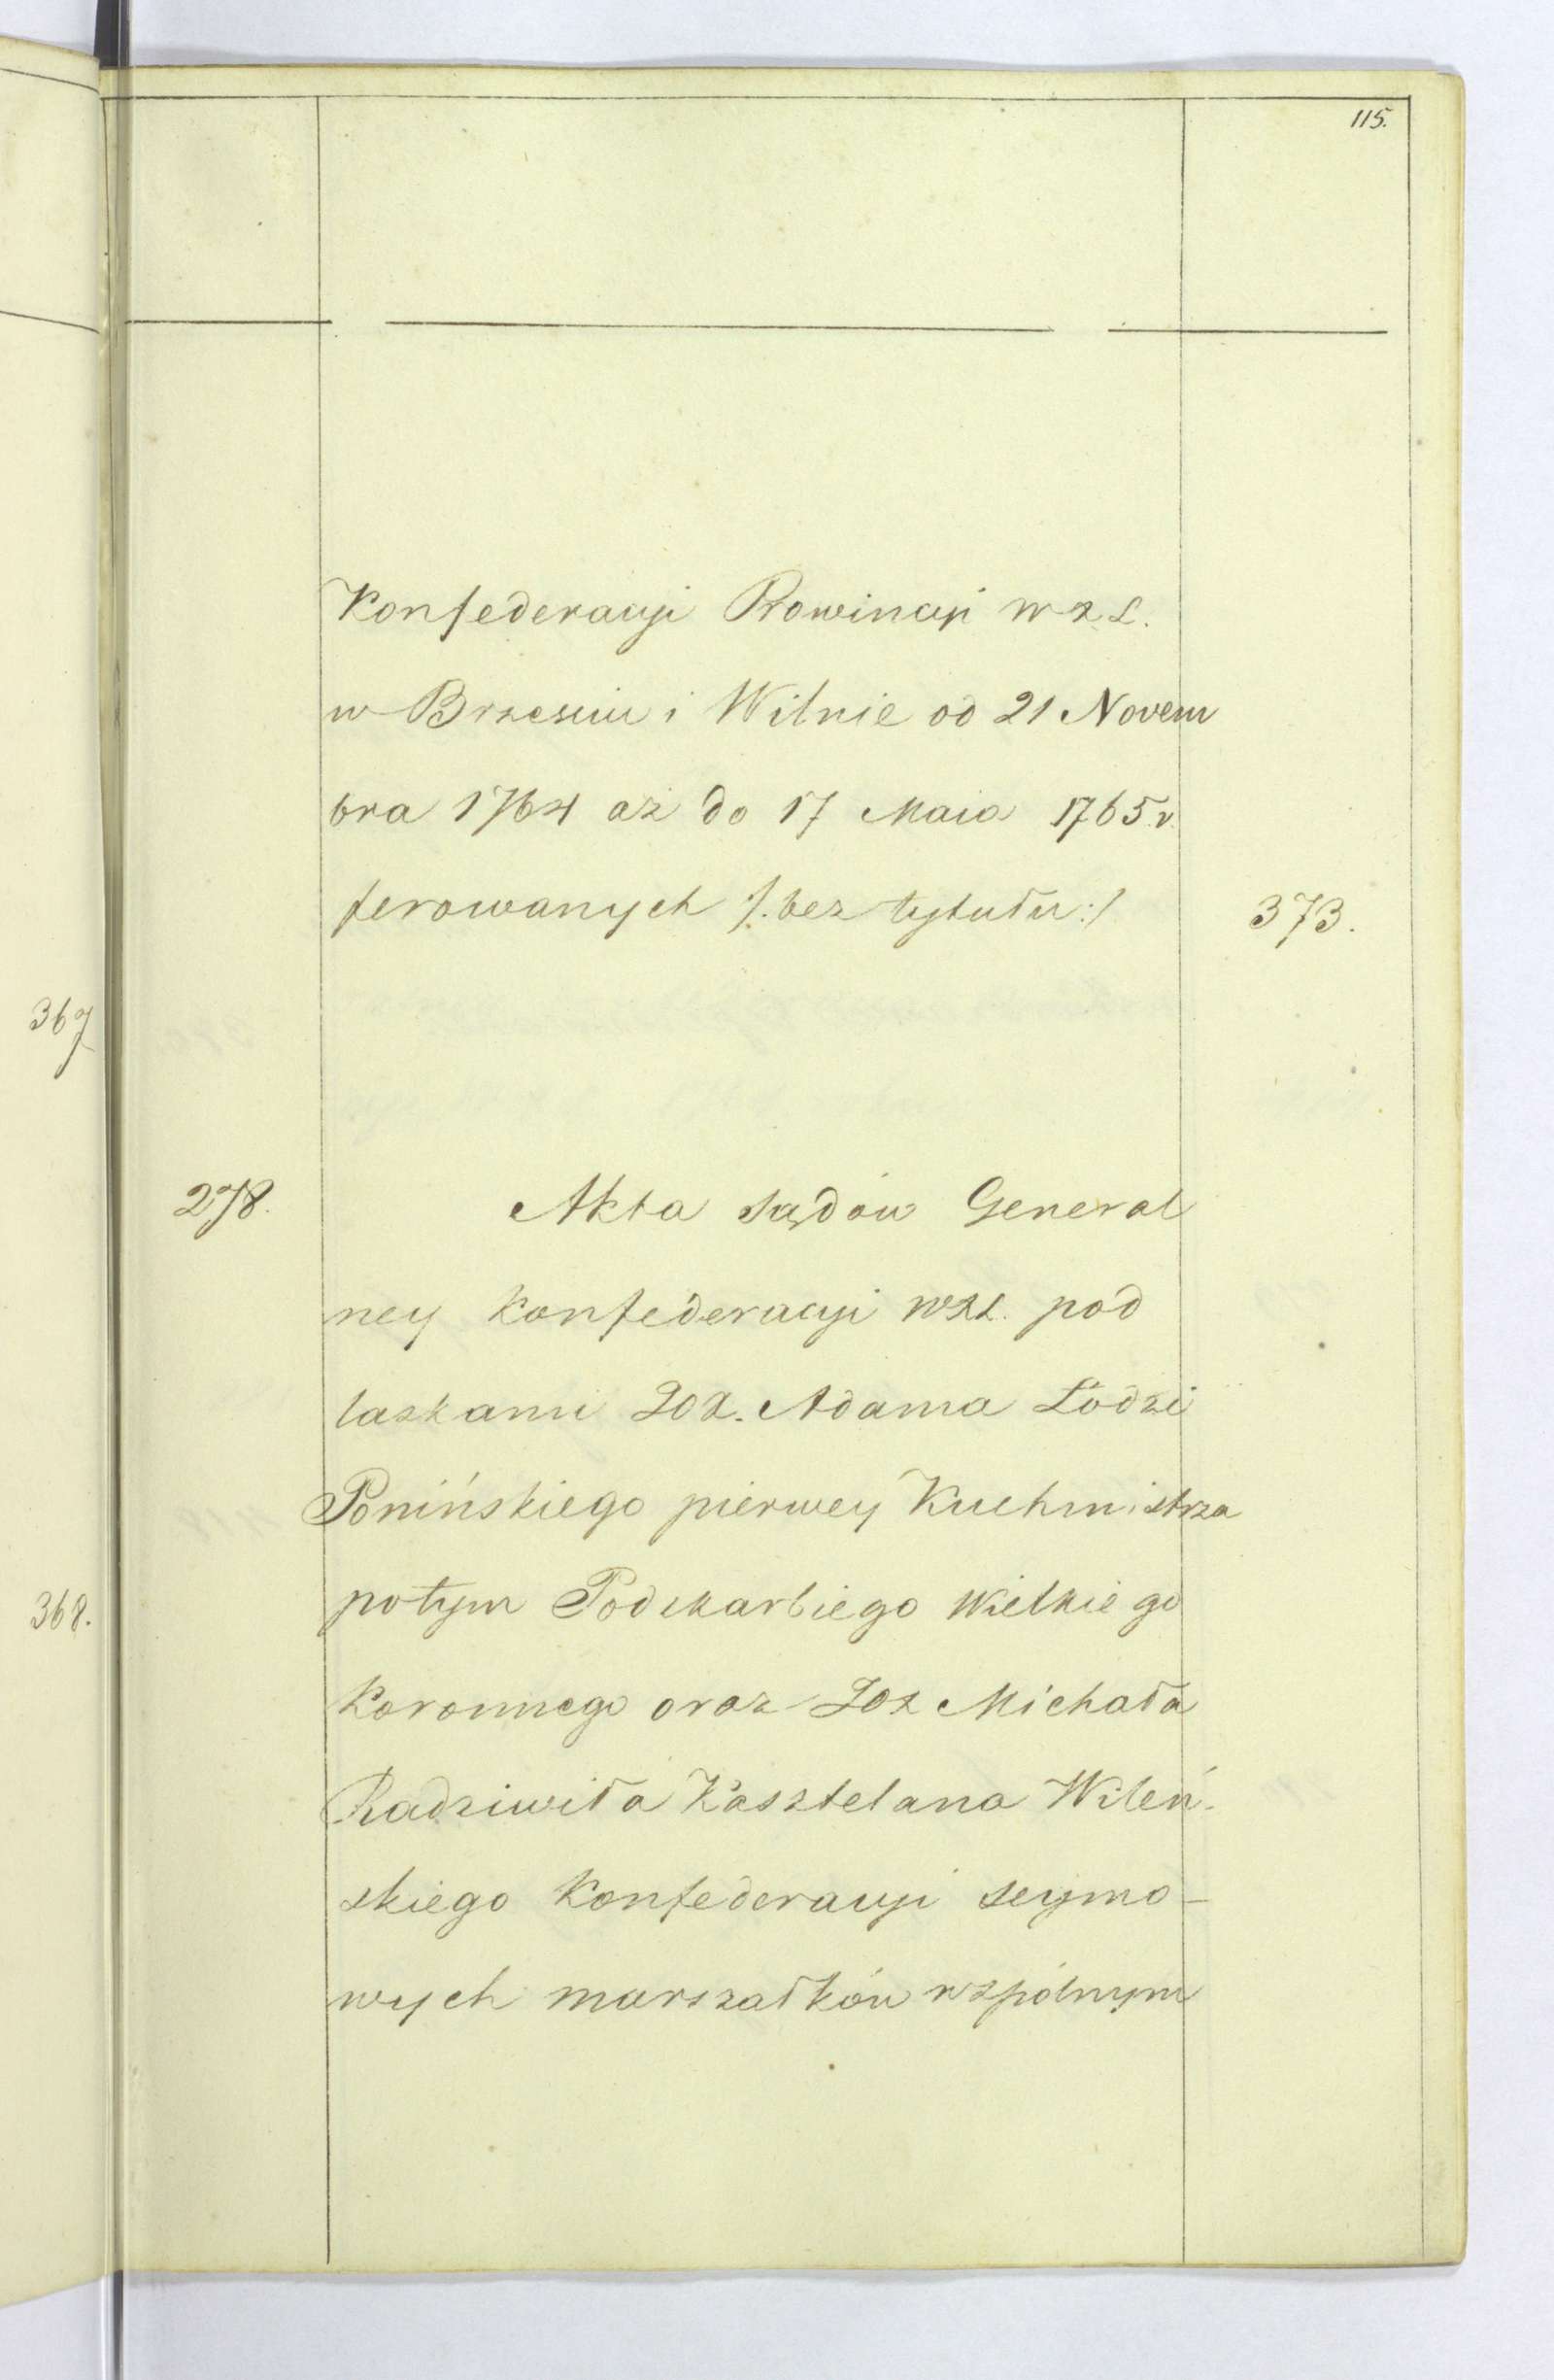 115.
Konfederacyi Prowincyi W X L.
w Brzesciu i Wilnie od 21 Novem
bra 1764 aż do 17 Maia 1765 r.
ferowanych /: bez tytułu :/
373.
367
278.
Akta sądów General
ney Konfederacyi WXL. pod
laskami JOX. Adama Łodzi
Ponińskiego pierwey Kuchmistrza
potym Podskarbiego Wielkiego
Koronnego oraz JOX Michała
Radziwiła Kasztelana Wileń-
skiego Konfederacyi seymo-
368.
wych marszałków wspólnym